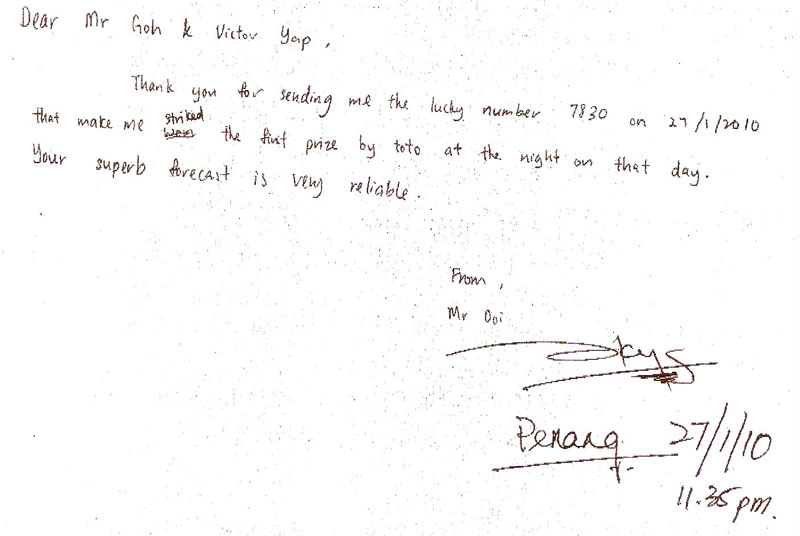 Dear Mr Goh & Victor Yap,
Thank you for sending me the lucky number 7830 on 27/1/2010
that make me striked the first prize by toto at the night on that day.
Your superb forecast is very reliable.
From,
Mr Ooi
Penang 27/1/10
11.35 pm.